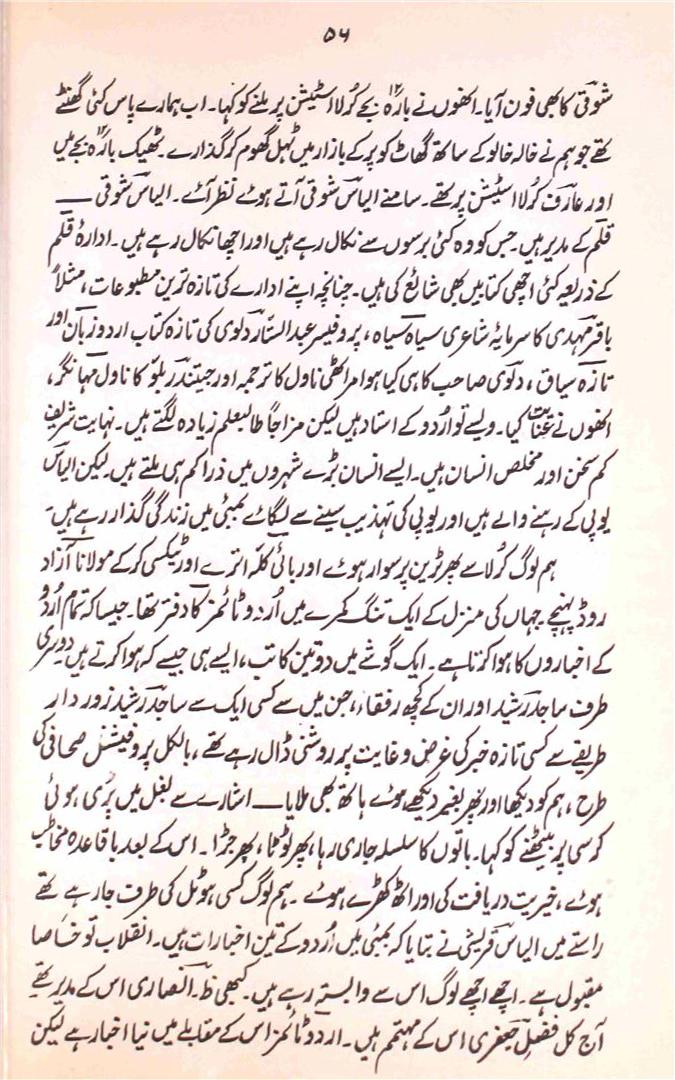 ۵۶
شوقی کا بھی فون آیا۔ انھوں نے بارہ بجے کُرلا اسٹیشن پر ملنے کو کہا۔ اب ہمارے پاس کئی گھنٹے
تھے جو ہم نے خالہ خالو کے ساتھ گھاٹ کوپر کے بازار میں ٹہل گھوم کر گذارے۔ ٹھیک بارہ بجے میں
اور عارف کُرلا اسٹیشن پر تھے۔ سامنے الیاس شوقی آتے ہوئے نظر آئے۔ الیاس شوقی ــــ
قلم کے مدیر ہیں۔ جس کو وہ کئی برسوں سے نکال رہے ہیں اور اچھا نکال رہے ہیں۔ ادارۂ قلم
کے ذریعہ کئی اچھی کتابیں بھی شائع کی ہیں۔ چنانچہ اپنے ادارے کی تازہ ترین مطبوعات، مثلاً
باقر مہدی کا سرمایۂ شاعری سیاہ سیاہ، پروفیسر عبدالستار دلوی کی تازہ کتاب اردو زبان اور
تازہ سیاق، دلوی صاحب کا ہی کیا ہوا مراٹھی ناول کا ترجمہ اور جیتندر بلّو کا ناول مہانگر،
انھوں نے عنایت کیا۔ ویسے تو اُردو کے استاد ہیں لیکن مزاجاً طالبعلم زیادہ لگتے ہیں۔ نہایت شریف
کم سخن اور مخلص انسان ہیں۔ ایسے انسان بڑے شہروں میں ذرا کم ہی ملتے ہیں۔ لیکن الیاس
یوپی کے رہنے والے ہیں اور یوپی کی تہذیب سینے سے لگائے بمبئی میں زندگی گذار رہے ہیں۔
ہم لوگ کُرلا سے پھر ٹرین پر سوار ہوئے اور بائی کلّہ اترے اور ٹیکسی کر کے مولانا آزاد
روڈ پہنچے۔ جہاں کی منزل کے ایک تنگ کمرے میں اُردو ٹائمز کا دفتر تھا۔ جیسا کہ تمام اُردو
کے اخباروں کا ہوا کرتا ہے۔ ایک گوشے میں دو تین کاتب، ایسے ہی جیسے کہ ہوا کرتے ہیں دوسری
طرف ساجد رشید اور ان کے کچھ رفقاء، جن میں سے کسی ایک سے ساجد رشید زور دار
طریقے سے کسی تازہ خبر کی غرض و غایت پر روشنی ڈال رہے تھے، بالکل پروفیشنل صحافی کی
طرح، ہم کو دیکھا اور پھر بغیر دیکھے ہوئے ہاتھ بھی ملایا ــــ اشارے سے بغل میں پڑی ہوئی
کرسی پر بیٹھنے کو کہا۔ باتوں کا سلسلہ جاری رہا، پھر ٹوٹا، پھر جڑا۔ اس کے بعد باقاعدہ مخاطب
ہوئے، خیریت دریافت کی اور اٹھ کھڑے ہوئے۔ ہم لوگ کسی ہوٹل کی طرف جا رہے تھے
راستے میں الیاس قریشی نے بتایا کہ بمبئی میں اُردو کے تین اخبارات ہیں۔ انقلاب تو خاصا
مقبول ہے۔ اچھے اچھے لوگ اس سے وابستہ رہے ہیں۔ کبھی ظ۔ انصاری اس کے مدیر تھے
آج کل فضیل جعفری اس کے مہتمم ہیں۔ اردو ٹائمز اس کے مقابلے میں نیا اخبار ہے لیکن